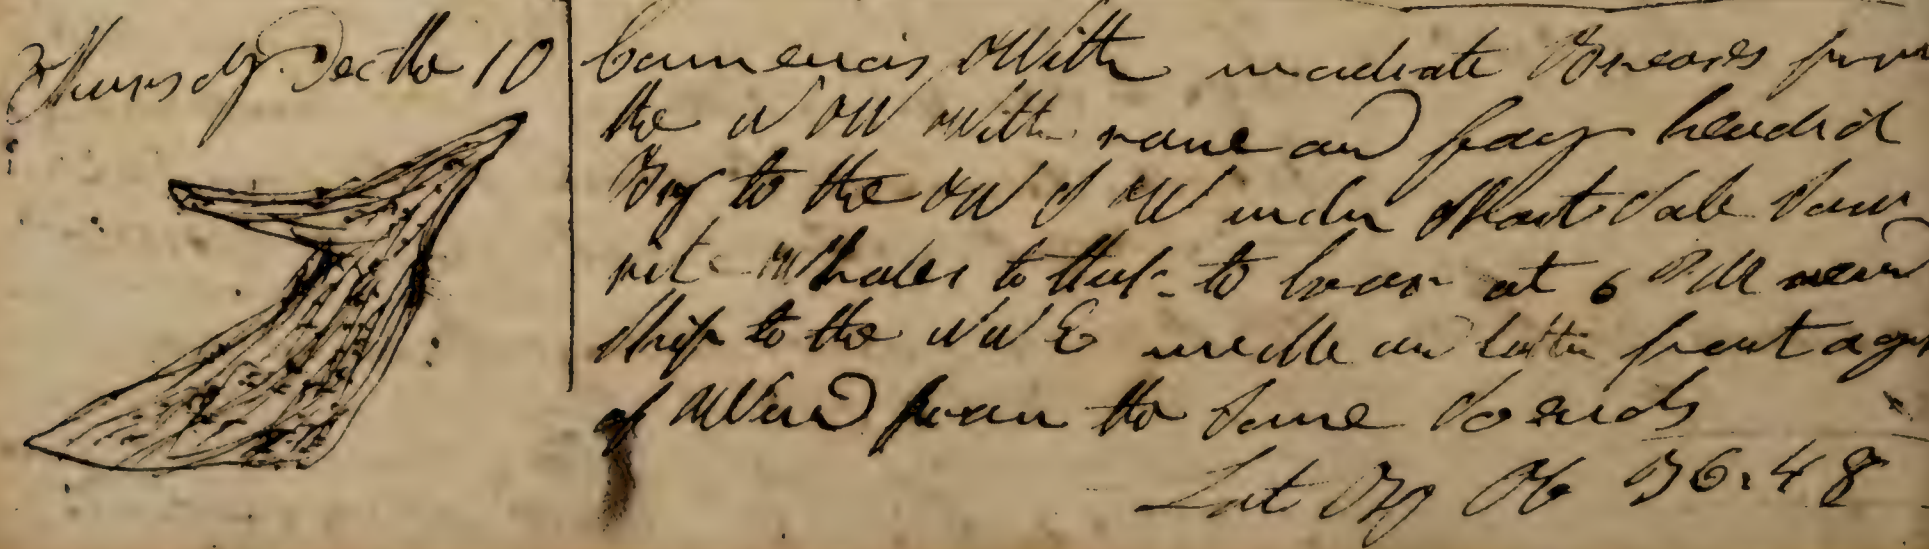 Thursdy Dec the 10
Comencis With modirate Breases from
the W S W With rane and fog headid
By to the S W & W under Short Sale Saw
rit Whales to thick to low at 6 P M ware
Ship to the N N E midle and latter part a gale
of Wind from the Same So ends
Lat By Ob 36.48